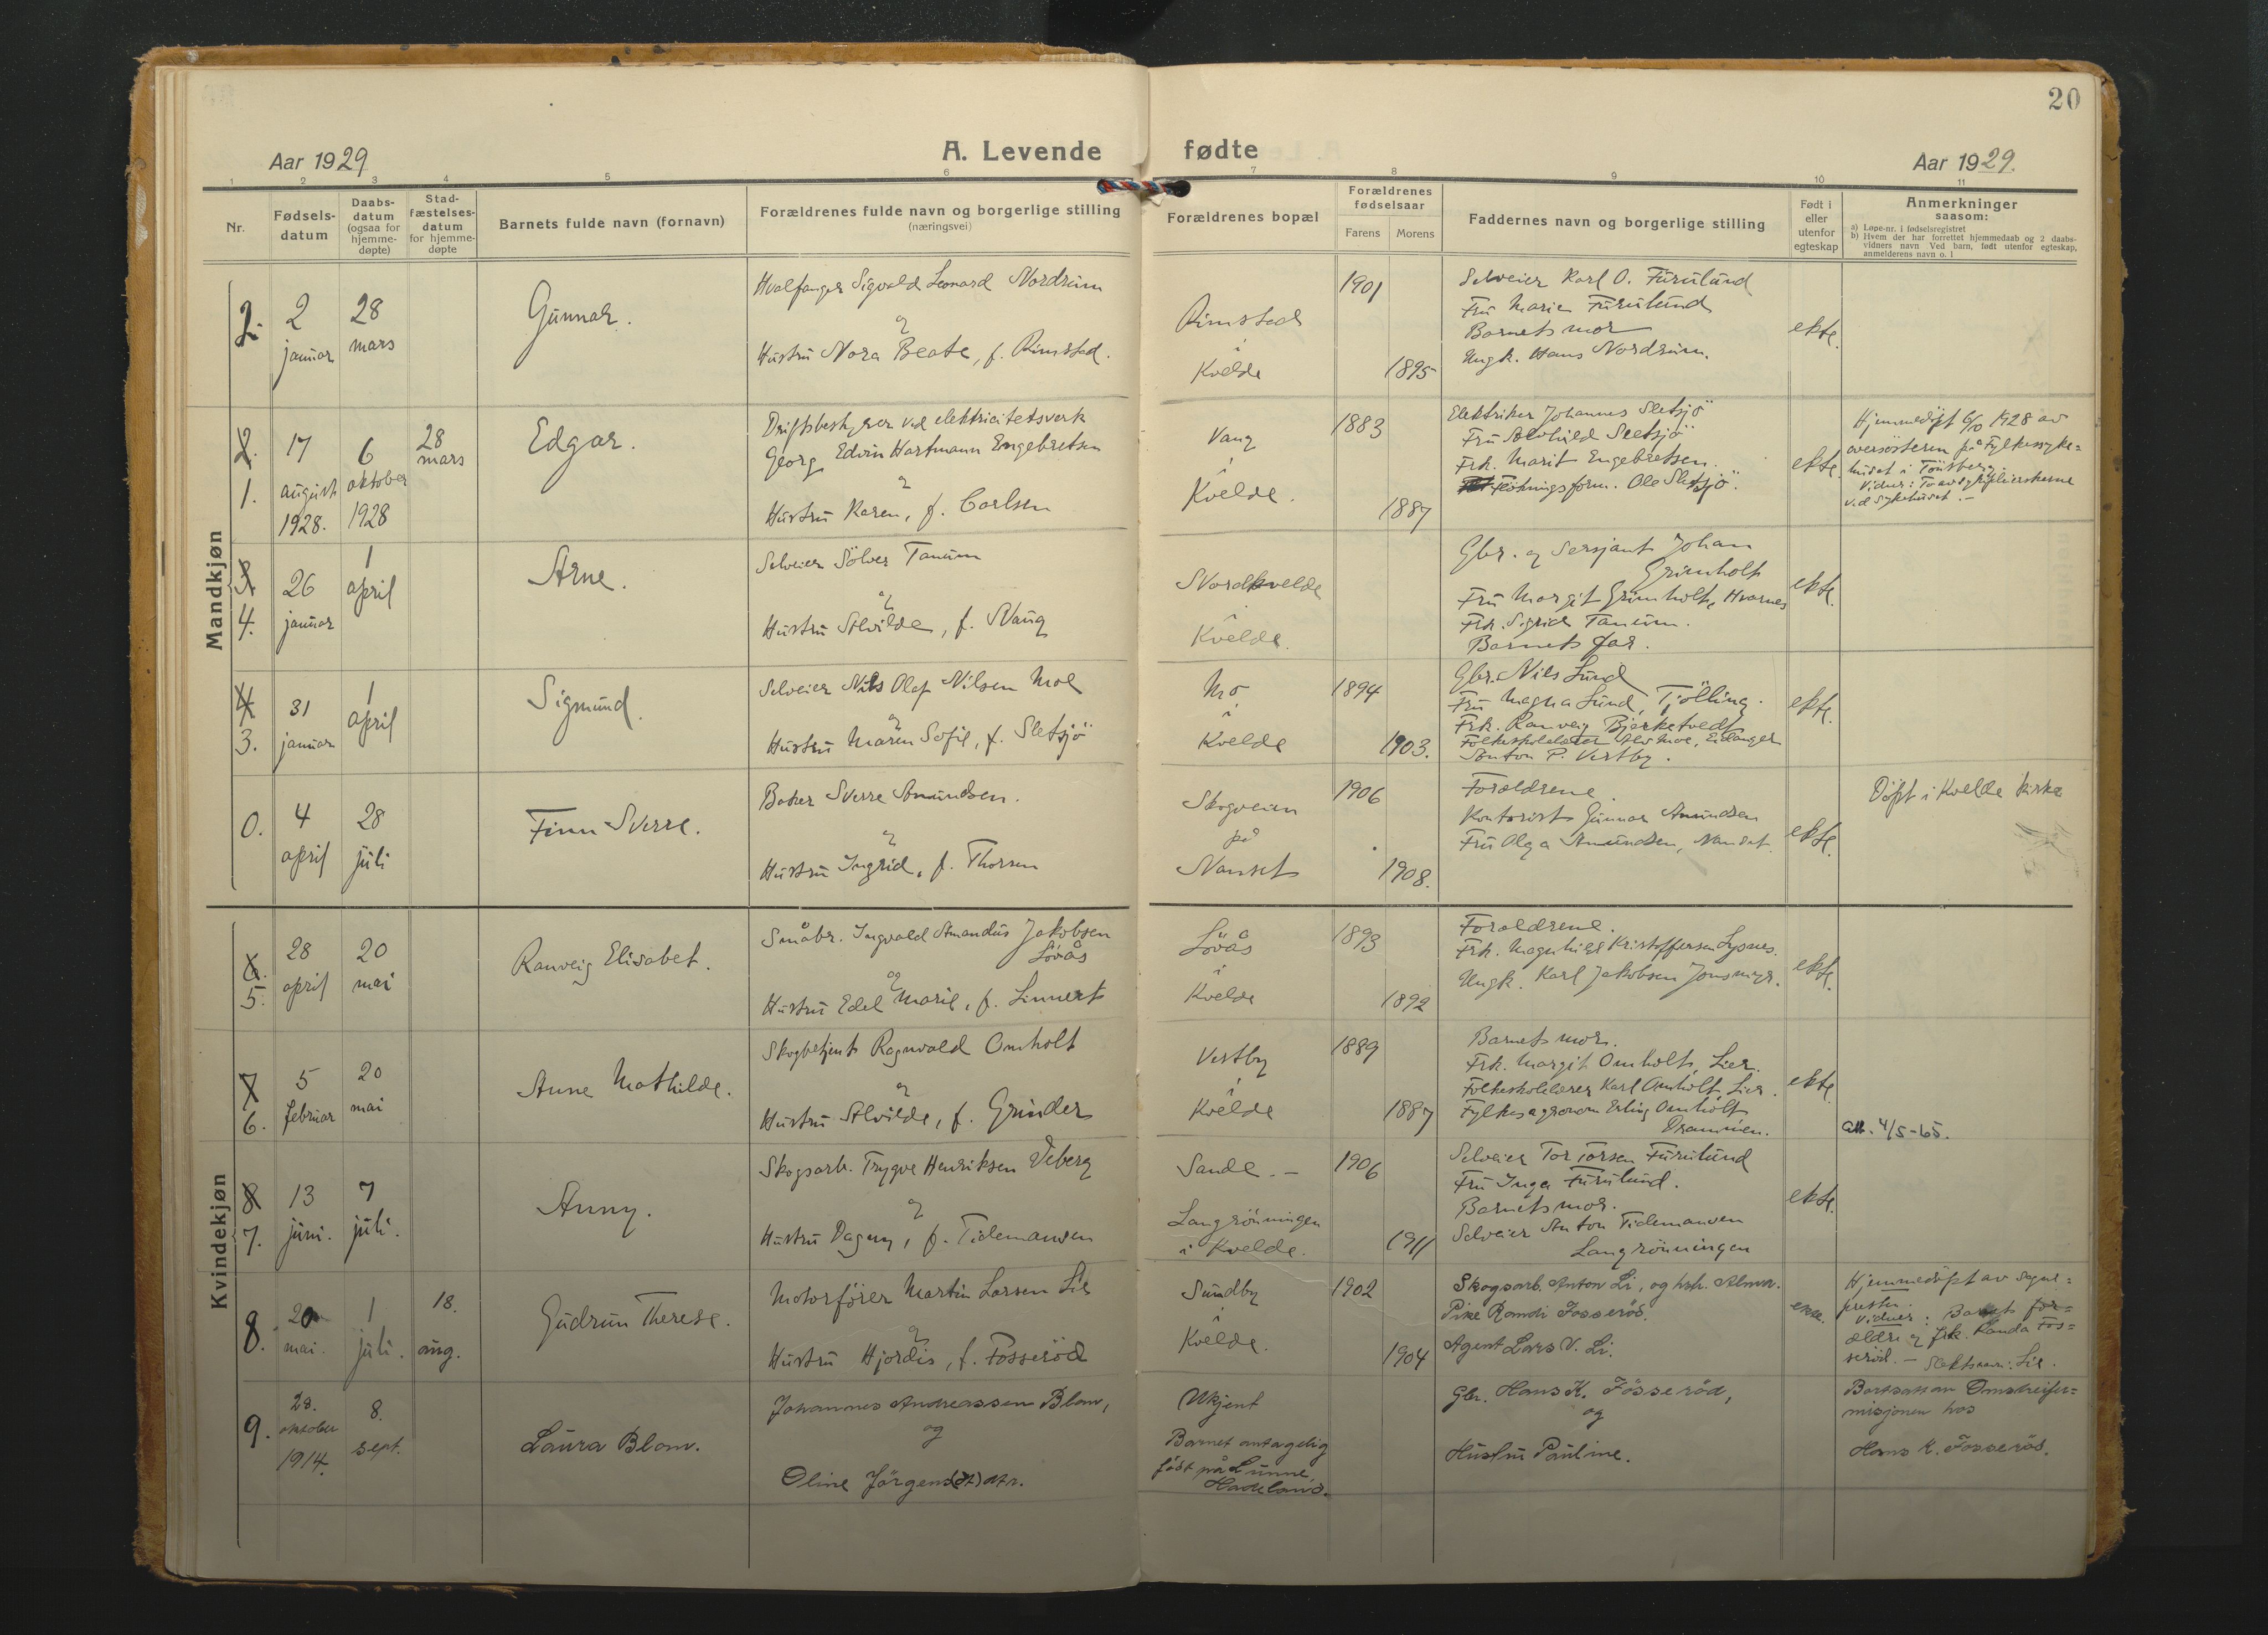 20
Aar 1929
A. Levende fødte
Aar 1929.
1 2 3 4 5 6 7 8 9 10 11
Nr.
Fødsels-
datum
Daabs-
datum
(ogsaa for
hjemme-
døpte)
Stad-
fæstelses-
datum
for hjemme-
døpte
Barnets fulde navn (fornavn)
Forældrenes fulde navn og borgerlige stilling
(næringsvei)
Forældrenes bopæl
Forældrenes
fødselsaar
Farens Morens
Faddernes navn og borgerlige stilling
Født i
eller
utenfor
egteskap
Anmerkninger
saasom:
a) Løpe-nr. i fødselsregistret
b) Hvem der har forrettet hjemmedaab og 2 daabs-
vidners navn Ved barn, født utenfor egteskap,
anmelderens navn o. l
Mandkjøn
2.
2
januar
28
mars
Gunnar.
Hvalfanger Sigvald Leonard Nordrum
og
Hustru Nora Beate, f. Rimstad.
Rimstad
i
Kvelde
1901
1895
Selveier Karl O. Furulund
Fru Marie Furulund
Barnets mor
Ungk. Hans Nordrum.
ekte.
2.
1.
17
august
1928.
6
oktober
1928
28
mars
Edgar.
Driftsbestyrer ved elektricitetsverk
Georg Edvin Hartmann Engebretsen
og
Hustru Karen, f. Carlsen
Vang
i
Kvelde.
1883
1887
Elektriker Johannes Sletsjö
Fru Sletsjö
Frk. Marit Engebretsen.
Flötningsform. Ole Sletsjö.
ekte.
Hjemmedöpt 6/10 1928 av
oversösteren på Fylkessyke=
huset i Tönsberg.
Vidner: To av sykepleierskerne
ved sykehuset.-
3
4.
26
januar
1
april
Arne.
Selveier Sölver Tanum
og
Hustru Alvilde, f. Naug
Nordkvelde
i
Kvelde.
Gbr. og Sersjant Johan
Grimholt
Fru Margit Grimholt, Hvarnes
Frk. Sigrid Tanum.
Barnets far.
ekte.
4
3.
31
januar
1
april
Sigmund.
Selveier Nils Olaf Nilsen Moe
og
Hustru Maren Sofie, f. Sletsjö
Mo
i
Kvelde
1894
1903.
Gbr. Nils Lund
Fru Magna Lund, Tjölling.
Frk. Ranveig Bjerketvedt
Folkeskolelærer Moe, Eidanger
Anton P. Vestby.
ekte.
0.
4
april
28
juli
Finn Sverre.
Baker Sverre Amundsen.
og
Hustru Ingrid, f. Thorsen
Skogveien
på
Nanset
1906
1908.
Forældrene.
Kontorist Gunnar Amundsen
Fru Olga Amundsen, Nanset.
ekte.
Döpt i Kvelde kirke
Kvindekjøn
6.
5.
28
april
20
mai
Ranveig Elisabet.
Småbr. Ingvald Amandus Jakobsen
Lövås
og
Hustru Edel Marie, f. Linnert
Lövås
i
Kvelde
1893
1892
Forældrene.
Frk. Magnhild Kristoffersen Lysnes.
Ungk. Karl Jakobsen Jonsmyr.
ekte.
7
6.
5
februar
20
mai
Anne Mathilde.
Skogbetjent Ragnvald Omholt
og
Hustru Alvilde, f. Grinder
Vestby
i
Kvelde
1889
1887
Barnets mor.
Frk. Margit Omholt, Lier.
Folkeskolelærer Karl Omholt, Lier.
Fylkesagronom Erling Omholt
Drammen.
ekte.
att. 4/5-65.
8
7.
13
juni.
7
juli.
Anny.
Skogsarb. Trygve Henriksen Veberg
og
Hustru Dagny, f. Tidemansen
Sande. -
Langrönningen
i Kvelde.
1906
1911
Selveier Tor Torsen Furulund
Fru Inga Furulund.
Barnets mor.
Selveier Anton Tidemansen
Langrönningen
ekte.
8.
20
mai.
1
juli.
18.
aug.
Gudrun Therese.
Motorförer Martin Larsen Lie
og
Hustru Hjordis, f. Fosseröd
Sundby
i
Kvelde.
1902
1904
Skogsarb. Anton Li, og hstr. Alma.
Pike Randi Fosseröd.
Agent Lars V. Li.
ekte.
Hjemmedöpt av sogne=
presten.
Vidner: Barnets for=
ældre og frk. Randa Fos=
seröd. - Slektsnavn: Lie.
9.
23.
oktober
1914.
8.
sept.
Laura Blom.
Johannes Andreassen Blom,
og
Oline Jörgens(dt)dtr.
Ukjent
Barnet antagelig
födt på Lunne,
Hadeland.
Gbr. Hans K. Fosseröd,
og
Hustru Pauline.
Bortsatt av Omstreifer=
misjonen hos
Hans K. Fosseröd.